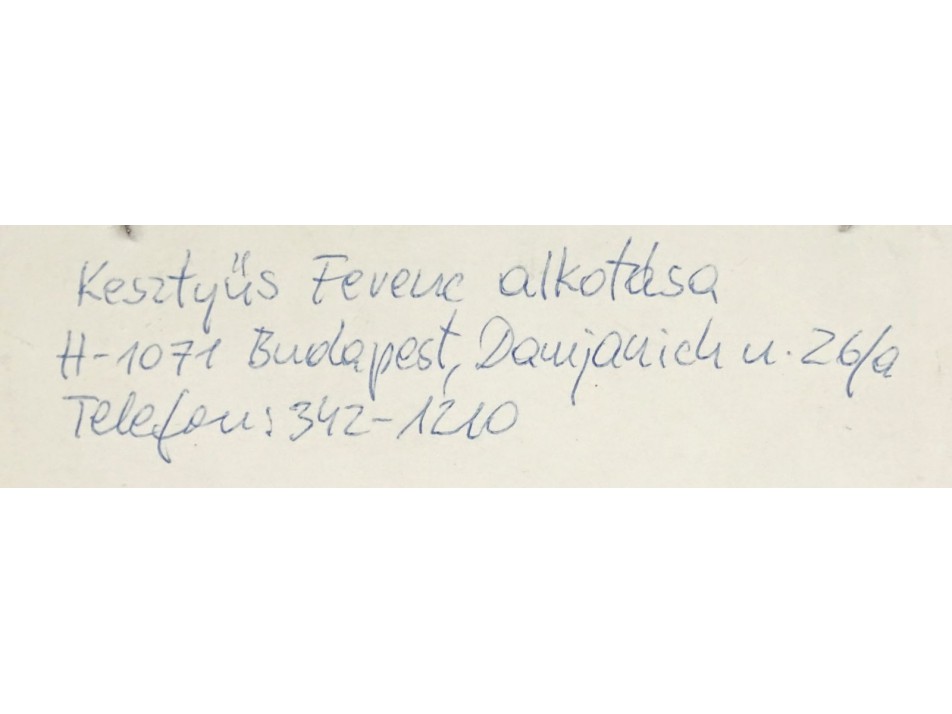 Kesztyűs Ferenc alkotása
H-1071 Budapest, Damjanich u. 26/a
Telefon: 342-1210